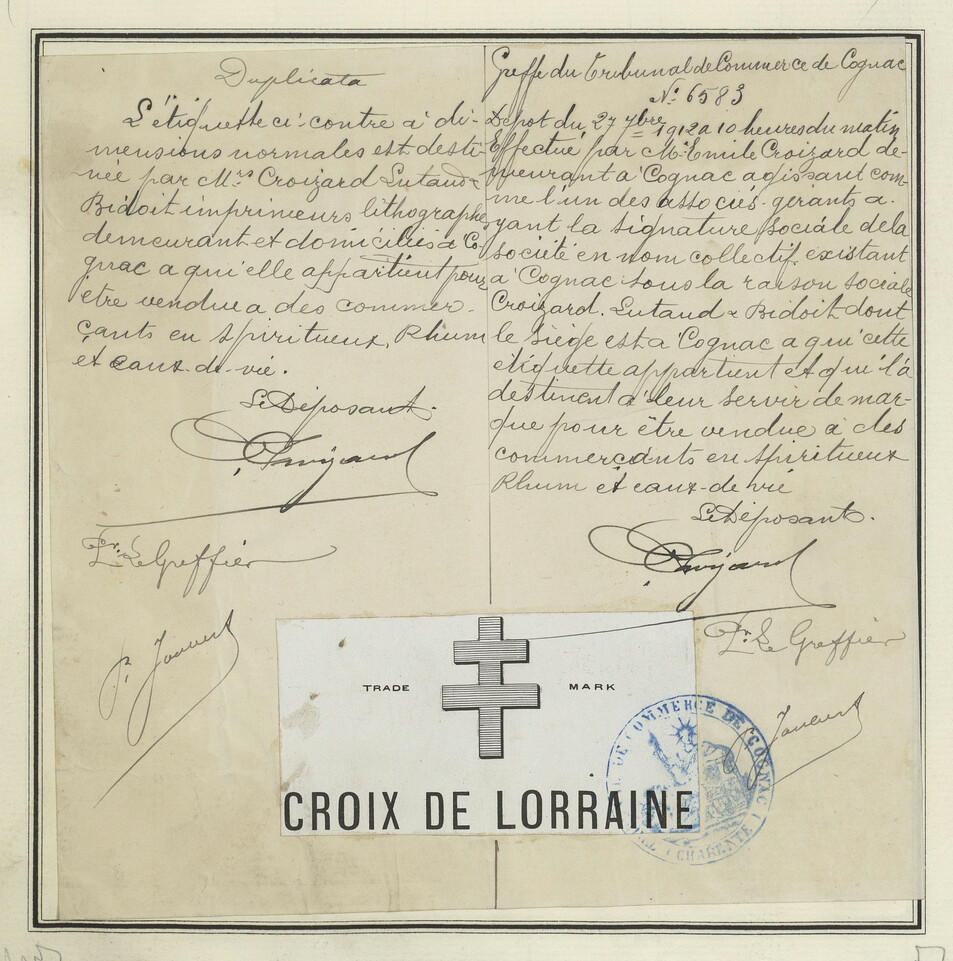 Duplicata
L'étiquette ci-contre à di-
mensions normales est desti-
née par Mrs Croizard Lutaud &
Bidoit imprimeurs lithographes
demeurant et domiciliés à Co-
gnac a qui elle appartient pour
être vendue a des commer-
çants en spiritueux, Rhum
et eaux-de-vie.
Le Déposant.
Croizard
Pr. Le Greffier
P. Jouvert
Greffe du Tribunal de Commerce de Cognac
No. 6583
Dépot du 27 7bre 1912 a 10 heures du matin
Effectué par Mr Emile Croizard de-
meurant à Cognac agissant com-
me l'un des associés-gérants a-
yant la signature sociale de la
société en nom collectif existant
à Cognac sous la raison sociale
Croizard, Lutaud & Bidoit dont
le siège est à Cognac a qui cette
étiquette appartient et qui l'a
destinent à leur servir de mar-
que pour être vendue à des
commerçants en spiritueux
Rhum et eaux-de vie
Le Déposant.
Croizard
Pr. Le Greffier
Jouvert
TRADE MARK
CROIX DE LORRAINE
DE COMMERCE DE COGNAC
(CHARENTE)